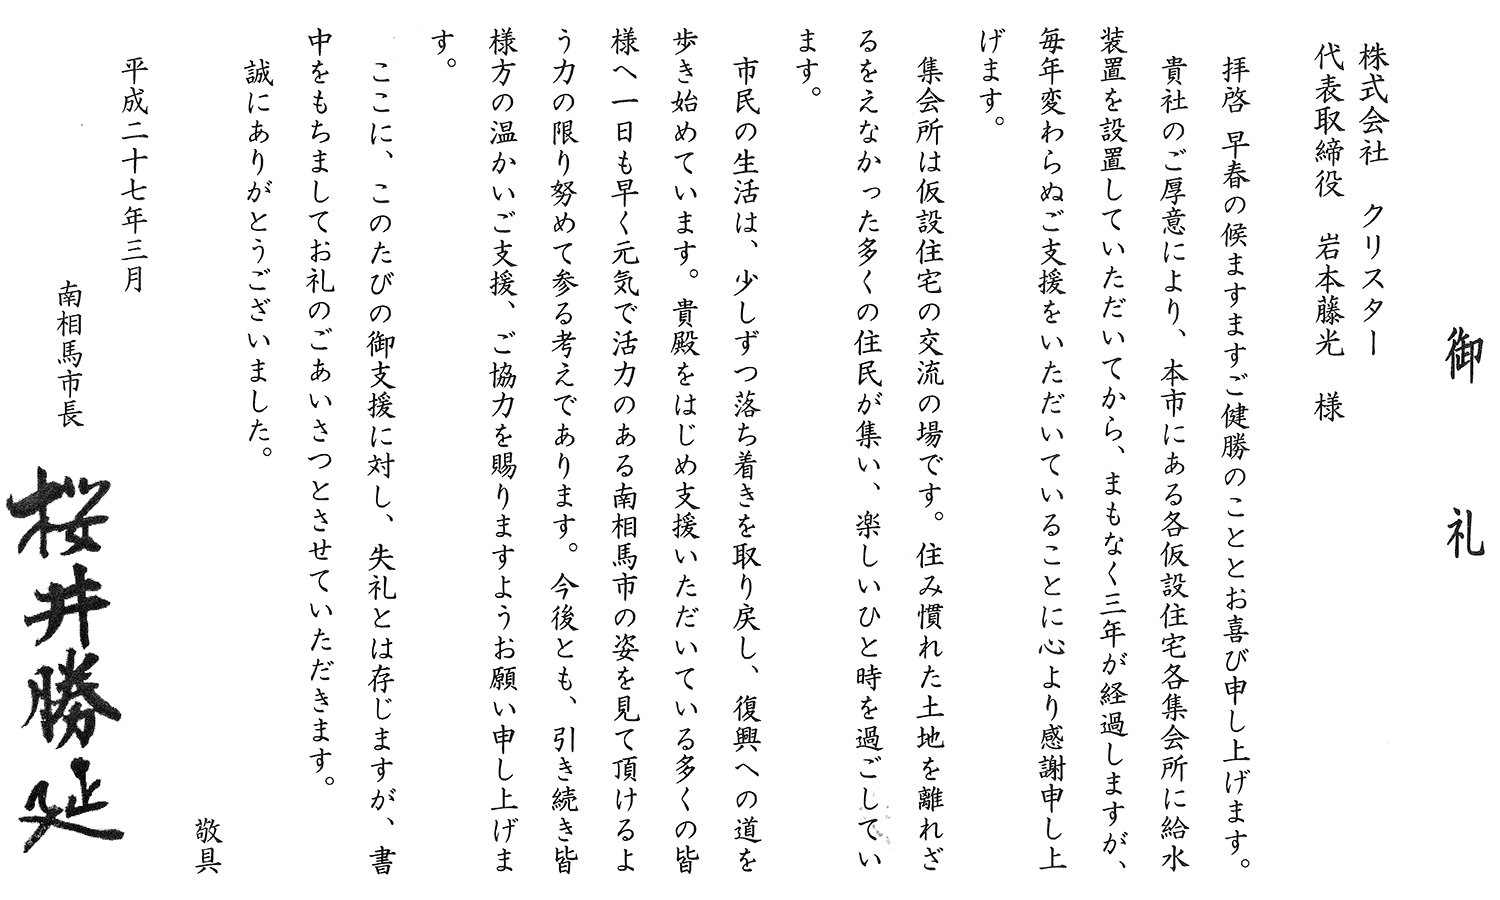 御礼
株式会社 クリスター
代表取締役 岩本藤光 様
拝啓 早春の候ますますご健勝のこととお喜び申し上げます。
貴社のご厚意により、本市にある各仮設住宅各集会所に給水
装置を設置していただいてから、まもなく三年が経過しますが、
毎年変わらぬご支援をいただいていることに心より感謝申し上
げます。
集会所は仮設住宅の交流の場です。住み慣れた土地を離れざ
るをえなかった多くの住民が集い、楽しいひと時を過ごしてい
ます。
市民の生活は、少しずつ落ち着きを取り戻し、復興への道を
歩き始めています。貴殿をはじめ支援いただいている多くの皆
様へ一日も早く元気で活力のある南相馬市の姿を見て頂けるよ
う力の限り努めて参る考えであります。今後とも、引き続き皆
様方の温かいご支援、ご協力を賜りますようお願い申し上げま
す。
ここに、このたびの御支援に対し、失礼とは存じますが、書
中をもちましてお礼のごあいさつとさせていただきます。
誠にありがとうございました。
敬具
平成二十七年三月
南相馬市長 桜井勝延